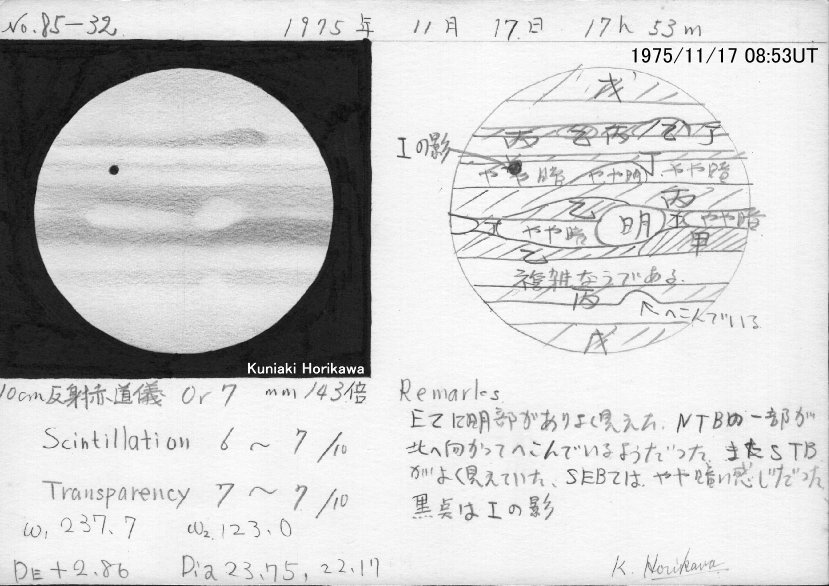 No. 85-32 1975年 11月 17日 17h 53m
1975/11/17 08:53UT
戊
丙 乙 丙 乙 丁
Iの影
やや暗 やや明 やや暗
丙
乙
明
やや暗
やや暗
甲
乙
複雑なようである.
丙
へこんでいる
戊
Kuniaki Horikawa
10cm反射赤道儀 Or 7 mm 143倍
Scintillation 6 ～ 7/10
Transparency 7 ～ 7/10
ω1 237.7 ω2 123.0
DE + 2.86 Dia 23.75, 22.17
Remarks
EZに明部がありよく見えた. NTBの一部が
北へ向かってへこんでいるようだった. またSTB
がよく見えていた. SEBZは、やや暗い感じだった
黒点はIの影
K. Horikawa